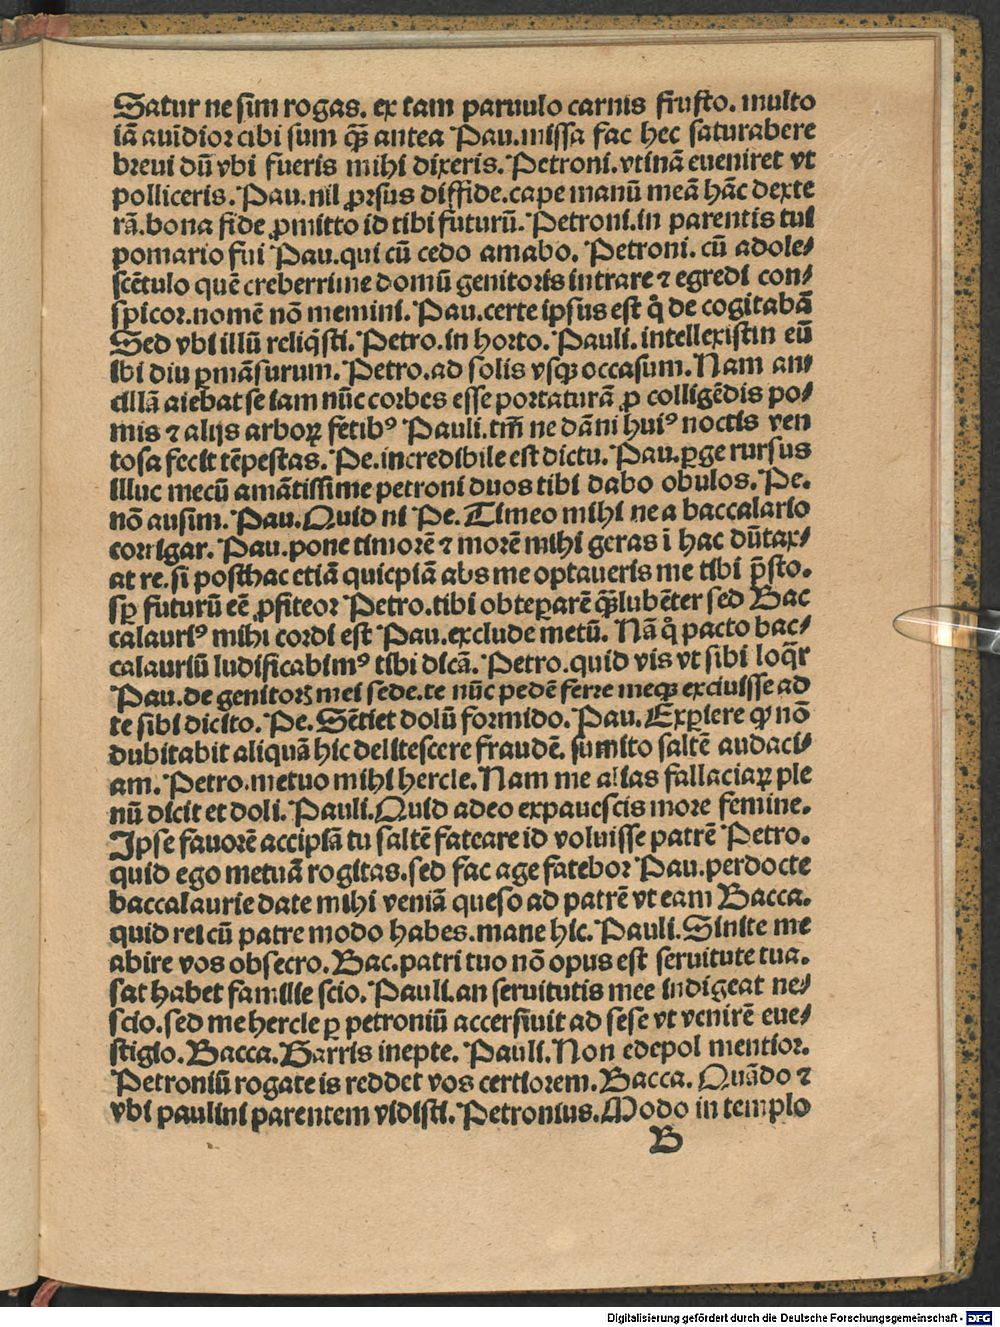 Satur ne sim rogas. ex tam paruulo carnis frusto. multo
iã auidior cibi sum q̃ȝ antea Pau. missa fac hec saturabere
breui dũ vbi fueris mihi dixeris. Petroni. vtinã eueniret vt
polliceris. Pau. nil ꝓrsus diffide. cape manũ meã hãc dexte
rã. bona fide ꝓmitto id tibi futurũ. Petroni. in parentis tui
pomario fui Pau. qui cũ cedo amabo. Petroni. cũ adole⸗
scẽtulo quẽ creberrime domũ genitoris intrare ⁊ egredi con⸗
spicor. nomẽ nõ memini. Pau. certe ipsus est q̊ de cogitabã
Sed vbi illũ reliq̃sti. Petro. in horto. Pauli. intellexistin eũ
ibi diu ꝑmãsurum. Petro. ad solis vsqꝫ occasum. Nam an⸗
cillã aiebat se iam nũc corbes esse portaturã ꝓ colligẽdis po⸗
mis ⁊ alijs arboꝝ fetibꝰ Pauli. tm̃ ne dãni huiꝰ noctis ven
tosa fecit tẽpestas. Pe. incredibile est dictu. Pau. ꝑge rursus
illuc mecũ amãtissime petroni duos tibi dabo obulos. Pe.
nõ ausim. Pau. Quid ni Pe. Timeo mihi ne a baccalario
corrigar. Pau. pone timorẽ ⁊ morẽ mihi geras ĩ hac dũtax⸗
at re. si posthac etiã quicpiã abs me optaueris me tibi p̃sto.
sꝑ futurũ eẽ ꝓfiteor Petro. tibi obteꝑarẽ q̃ȝlubẽter sed Bac
calauriꝰ mihi cordi est Pau. exclude metũ. Nã q̊ pacto bac⸗
calauriũ ludificabimꝰ tibi dicã. Petro. quid vis vt sibi loq̃r
Pau. de genitorꝭ mei sede. te nũc pedẽ ferre meqꝫ exciuisse ad
te sibi dicito. Pe. Sẽtiet dolũ formido. Pau. Exꝑiere ꝙ nõ
dubitabit aliquã hic delitescere fraudẽ. sumito saltẽ audaci⸗
am. Petro. metuo mihi hercle. Nam me alias fallaciaꝝ ple
nũ dicit et doli. Pauli. Quid adeo expauescis more femine.
Ipse fauorẽ accipiã tu saltẽ fateare id voluisse patrẽ Petro.
quid ego metuã rogitas. sed fac age fatebor Pau. perdocte
baccalaurie date mihi veniã queso ad patrẽ vt eam Bacca.
quid rei cũ patre modo habes. mane hic. Pauli. Sinite me
abire vos obsecro. Bac. patri tuo nõ opus est seruitute tua.
sat habet familie scio. Pauli. an seruitutis mee indigeat ne⸗
scio. sed me hercle ꝑ petroniũ accersiuit ad sese vt venirẽ eue⸗
stigio. Bacca. Garris inepte. Pauli. Non edepol mentior.
Petroniũ rogate is reddet vos certiorem. Bacca. Quãdo ⁊
vbi paulini parentem vidisti. Petronius. Modo in templo
B
Digitalisierung gefördert durch die Deutsche Forschungsgemeinschaft - DFG